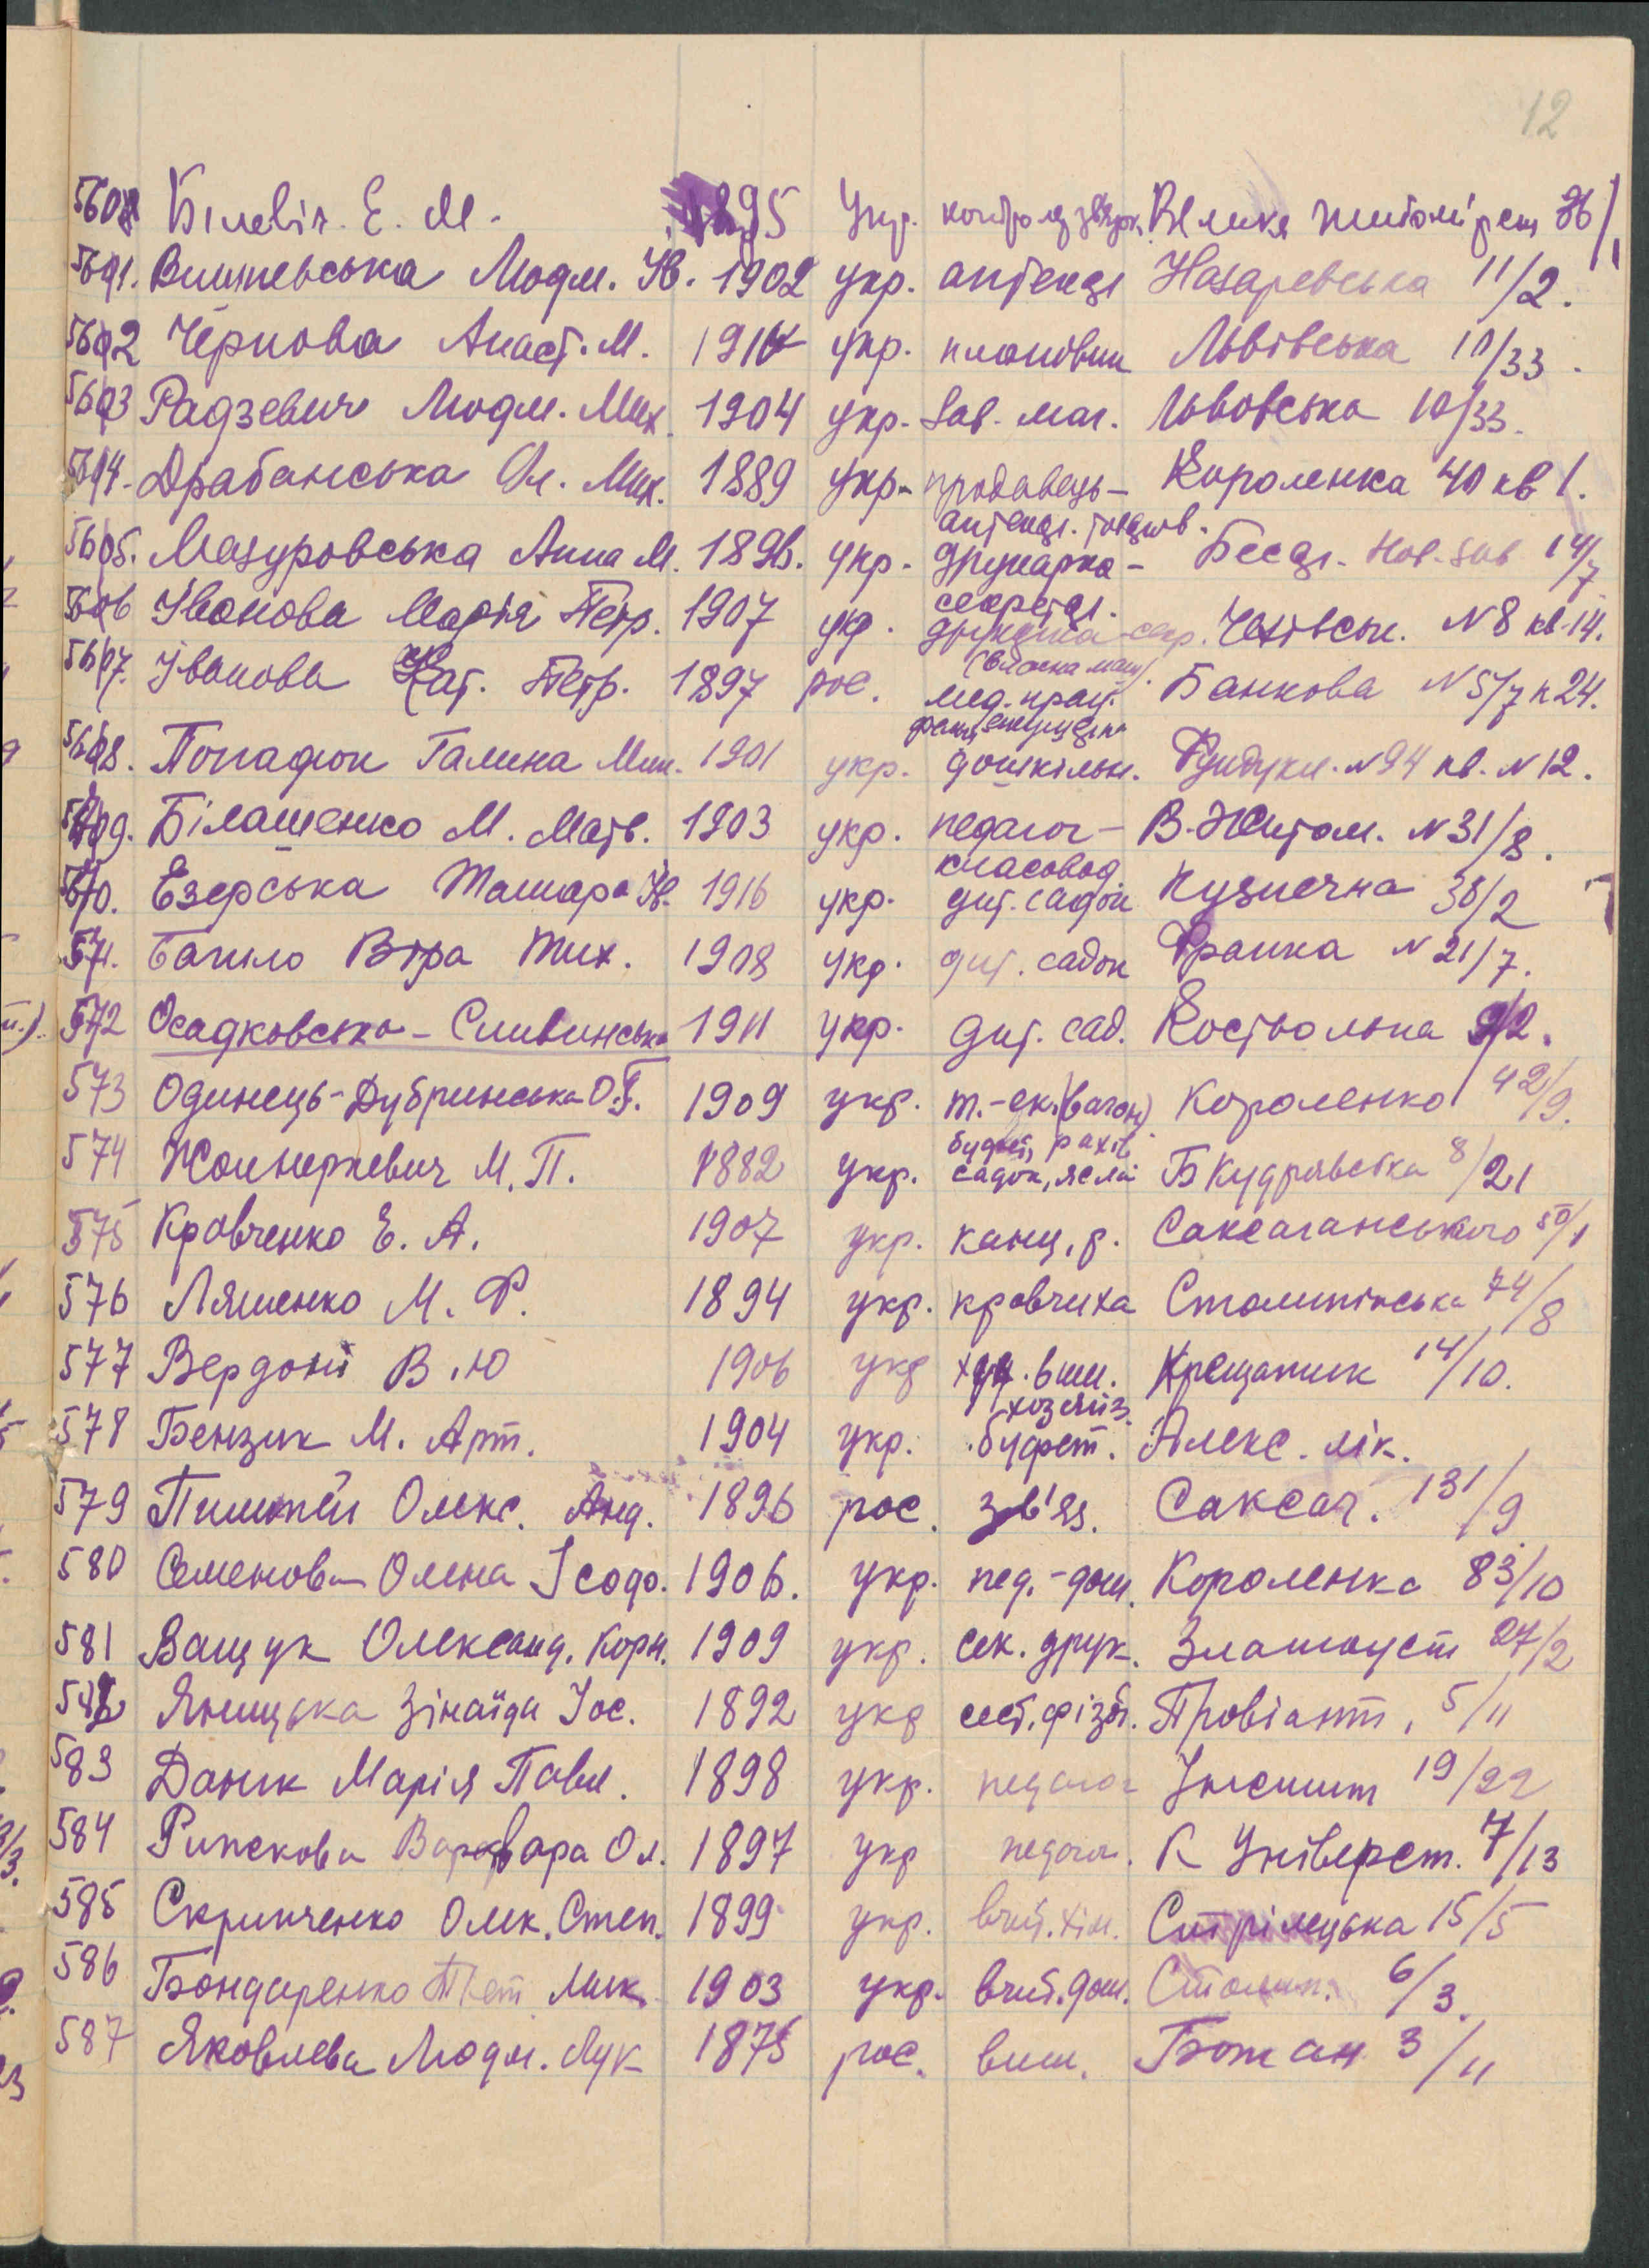 12
560 Білевіч. Е. М. 1895 Укр. контролер зв'язк. Велика Житомірська 36/1
561. Вишневська Людм. Ів. 1902 укр. аптекар Назаревська 11/2.
562 Чернова Анаст. М. 1914 укр. плановик Львівська 10/33.
563 Радзевич Людм. Мих. 1904 укр. зав. маг. Львовська 10/33.
564. Драбанська Ол. Мих. 1889 укр. продавець- Короленка 40 кв 1.
аптекар. товаров.
565. Мазуровська Анна М. 1896. укр. друкарка- Бесар. Нов. 14/7
секретар.
566 Іванова Марія Петр. 1907 укр. друкарка-секр. Чехівськ. N8 кв-14.
(власна маш).
567. Іванова Кат. Петр. 1897 рос. мед. прац. Банкова N5/7 к 24.
568. Попадюк Галина Мик. 1901 укр. дошкільн. Фундукл. N94 кв. N12.
569. Білашенко М. Матв. 1903 укр. педагог- В-Житом. N31/8.
класовод
570. Езерська Тамара Ів. 1916 укр. дит. садок Кузнечна 38/2
571. Багіло Віра Тих. 1908 укр. дит. садок Франка N21/7.
572 Осадковська-Сливинська 1911 укр. дит. сад. Костьольна 9/2.
573 Одинець-Дубринська О.Г. 1909 укр. т.-ек. (вагон) Короленко 42/9.
574 М. П. 1882 укр. садок, ясла Б Кудрявська 8/21
575 Кравченко Е. А. 1907 укр. канц. р. Саксаганського 50/1
576 Ляшенко М. Ф. 1894 укр. кравчиха Столипінська 74/8
577 Вердоні В. Ю 1906 укр худ. виш. Крещатик 14/10.
хозяйз.
578 Бензик М. Арт. 1904 укр. буфет. Алекс. лік.
579 Олекс. Анд. 1896 рос. зв'яз. Саксаг. 131/9
580 Семенова Олена Ісодо. 1906. укр. пед.-дош. Короленка 83/10
581 Ващук Олександ. Корн. 1909 укр. сек. друк. Златоуст 27/2
582 Яницька Зінаїда Іос. 1892 укр сест. фізіт. Провіант. 5/11
583 Даник Марія Павл. 1898 укр. педагог Інститут 19/22
584 Рипскова Варвара Ол. 1897 укр педагог. К Універст. 7/13
585 Скрипченко Олек. Степ. 1899 укр. вчит. хім. Стрілецька 15/5
586 Бондаренко Пет Мик. 1903 укр. вчит. дош. Столип. 6/3.
587 Яковлева Людм. Лук 1875 рос. виш. Ботан 3/11